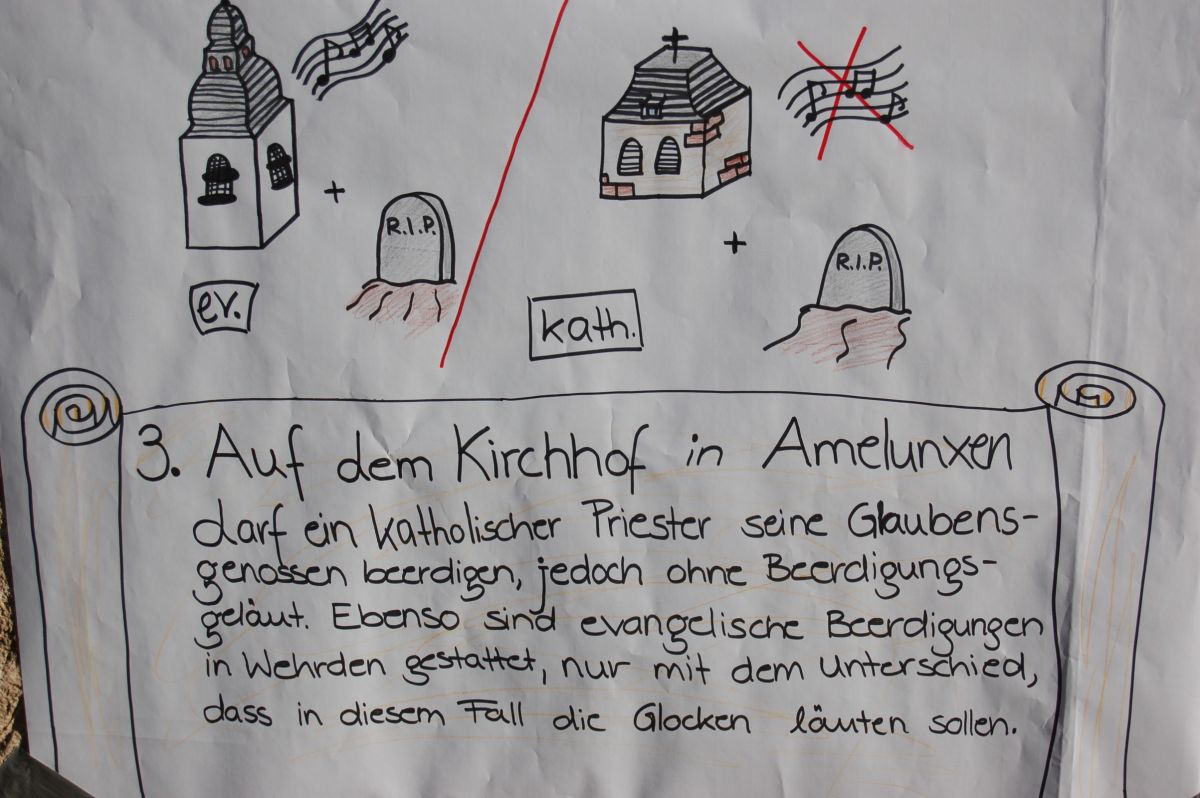 R.I.P.
ev.
R.I.P.
kath.
3. Auf dem Kirchhof in Amelunxen
darf ein katholischer Priester seine Glaubens-
genossen beerdigen, jedoch ohne Beerdigungs-
geläut. Ebenso sind evangelische Beerdigungen
in Wehrden gestattet, nur mit dem Unterschied,
dass in diesem Fall die Glocken läuten sollen.